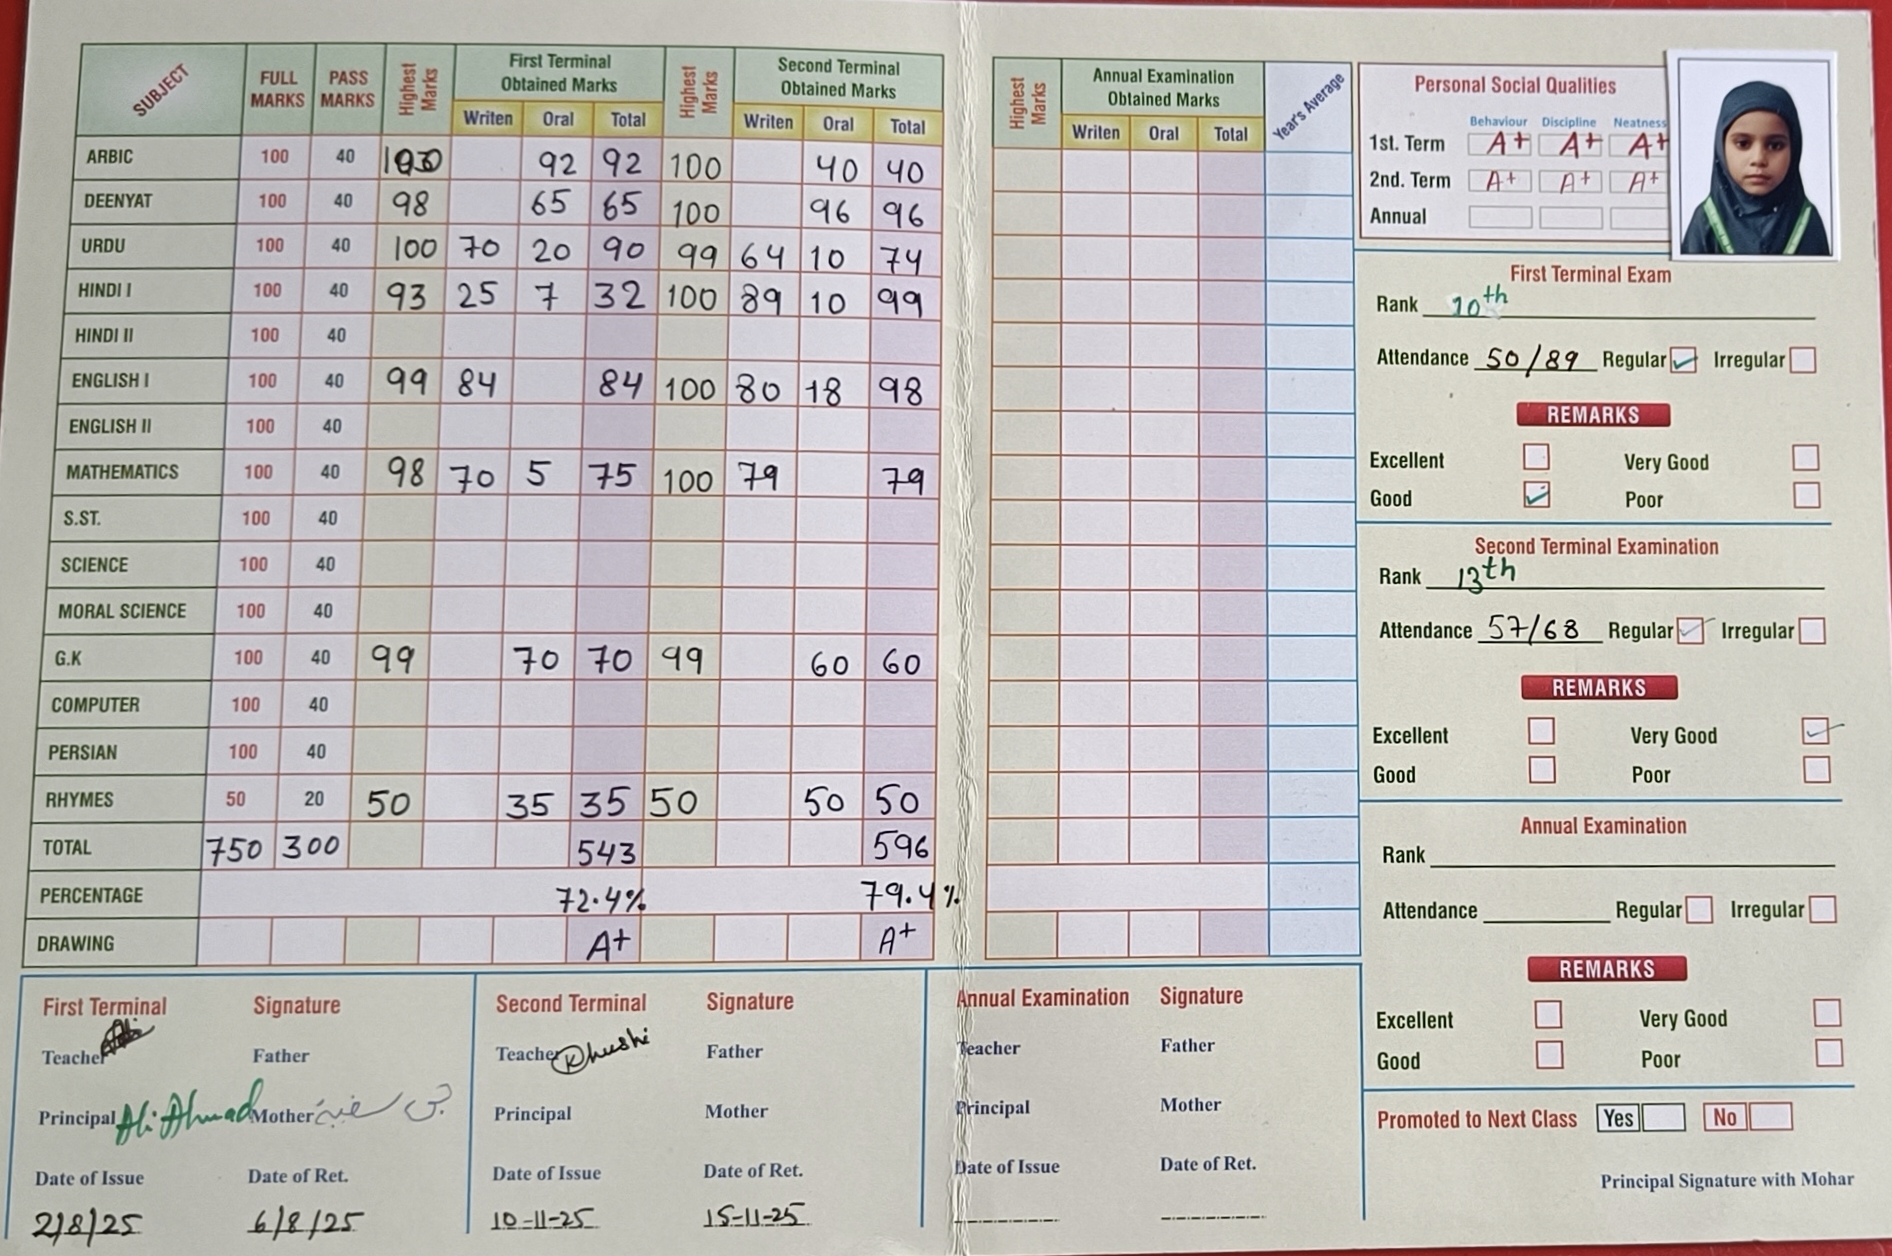 SUBJECT FULL MARKS PASS MARKS Highest Marks First Terminal Obtained Marks Highest Marks Second Terminal Obtained Marks
Writen Oral Total Writen Oral Total
ARBIC 100 40 92 92 100 40 40
DEENYAT 100 40 98 65 65 100 96 96
URDU 100 40 100 70 20 90 99 64 10 74
HINDI I 100 40 93 25 7 32 100 89 10 99
HINDI II 100 40
ENGLISH I 100 40 99 84 84 100 80 18 98
ENGLISH II 100 40
MATHEMATICS 100 40 98 70 5 75 100 79 79
S.ST. 100 40
SCIENCE 100 40
MORAL SCIENCE 100 40
G.K 100 40 99 70 70 99 60 60
COMPUTER 100 40
PERSIAN 100 40
RHYMES 50 20 50 35 35 50 50 50
TOTAL 750 300 543 596
PERCENTAGE 72.4% 79.4%
DRAWING A+ A+
Highest Marks Annual Examination Obtained Marks Year's Average
Writen Oral Total
Personal Social Qualities
Behaviour Discipline Neatness
1st. Term A+ A+ A+
2nd. Term A+ A+ A+
Annual
First Terminal Exam
Rank 10th
Attendance 50/89 Regular Irregular
REMARKS
Excellent Very Good
Good Poor
Second Terminal Examination
Rank 13th
Attendance 57/68 Regular Irregular
REMARKS
Excellent Very Good
Good Poor
Annual Examination
Rank
Attendance Regular Irregular
REMARKS
Excellent Very Good
Good Poor
Promoted to Next Class Yes No
Principal Signature with Mohar
First Terminal Signature
Teacher Father
Principal Ali Ahmad Mother
Date of Issue Date of Ret.
2/8/25 6/8/25
Second Terminal Signature
Teacher Khushi Father
Principal Mother
Date of Issue Date of Ret.
10-11-25 15-11-25
Annual Examination Signature
Teacher Father
Principal Mother
Date of Issue Date of Ret.